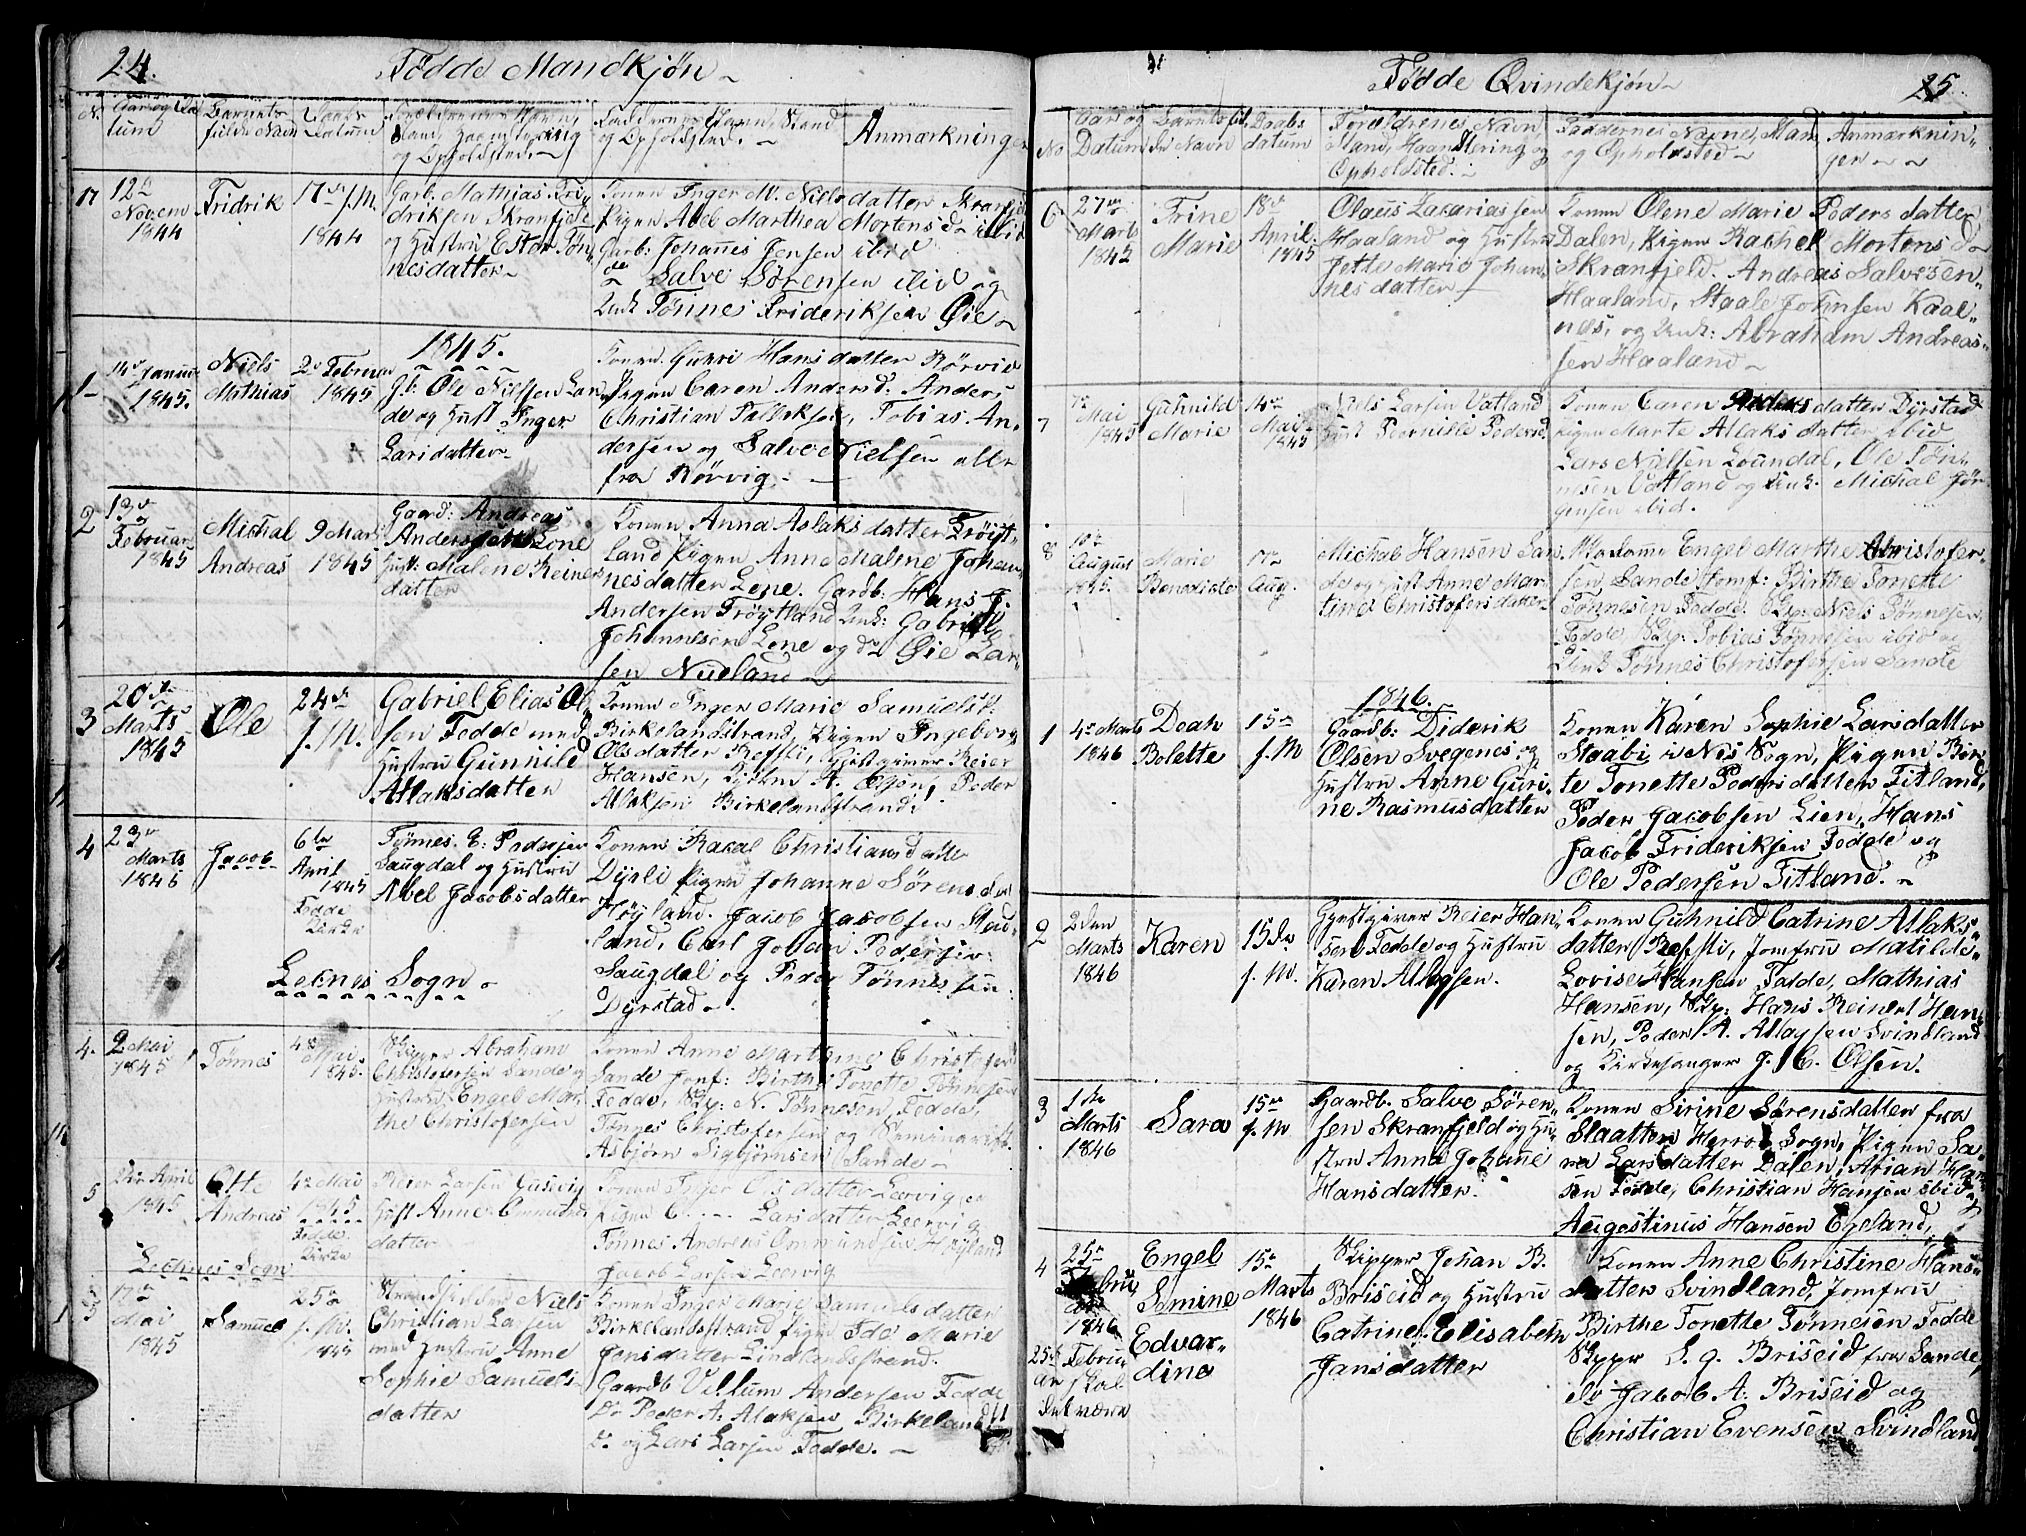 24.
Födde Mandkjøn
Aar og Da-
tum
Barnets
fulde Navn
Daabs
Datum
Forældrenes Navn,
Stand, Haandtering
og Opholdsted.
Faddernes Navn, Stand
og Opholdsted.
Anmærkninger
17
12te
Novem
1844
Fridrik
17de f. M.
1844
Garb. Mathias Fri-
driksen Skranfjeld
og Hustru Ester Tön-
nesdatter
Konen Inger M. Nielsdatter Skranfjeld
Pigen Abel Marthea Mortensd. ibid
Garb: Johannes Jensen ibid
do Salve Sørensen ibid og
Unk Tönnes Frideriksen Øie
1845.
1
14de Januar
1845.
Niels
Mathias
2de Februar
1845
gb: Ole Nielsen Lan-
de og Hust. Inger
Larsdatter
Konen Guri Hansdatter Rørvig
Pigen Caren Andersd. Anders
Christian Falleksen, Tobias An-
dersen og Salve Nielsen alle
fra Rørvig.
2
13de
Februar
1845
Michal
Andreas
9 Mar
1845
Gaard: Andreas
Andersen Lone
Hust: Malene Reiners
datter
Konen Anna Aslaksdatter Trøgt-
land Pigen Anne Malene Johan-
nesdatter Lone. Gardb: Hans J.
Andersen Trøgtland Unk: Gabriel
Johannesen Lone og do Øie Lar-
sen Nueland
3
20de
Marts
1845
Ole
24de
f. M.
Gabriel Elias Ol-
sen Fedde med
Hustru Gunnild
Atlaksdatter
Konen Inger Marie Samuelsd.
Birkelandstrand, Pigen Ingeborg
Olsdatter Refsti, Gjestgiver Reier
Hansen, A. Olsen, Peder
Atlaksen Birkelandstrand.
4
23de
Marts
1845
Jacob
6te
April
1845
Fedde
Kirke
Tønnes E: Pedersen
Laugdal og Hustru
Abel Jacobsdatter
Konen Rakal Christiansdatter
Dyrli Pigen Johanne Sørensdatter
Høyland. Jacob Jacobsen Stad-
land, Carl Johan Pedersen
Laugdal og Peder Tønnessen
Dyrstad.
Leknes Sogn
4.
2 Mai
1845
Tønnes
4de
Mai
1845.
Skipper Abraham
Christofersen Sande og
Hustru Engel Mar-
the Christofersen
Konen Anne Marthine Christofersen
Sande Jomf: Birthe Tonette Tønnesen
Fedde, Skp: N. Tønnesen, Fedde,
Tønnes Christofersen og Seminarist
Asbjørn Sigbjørnsen Sande
5
2de April
1845
Otte
Andreas
4de Mai
1845
Fedde
Kirke
Leknes Sogn
Reier Larsen
Hust Anne Ommunds
datter
Konen Inger Olsdatter Leervig
Pigen C.... Larsdatter Leervig
Tønnes Andreas Ommundsen Høyland
Jacob Larsen Leervig
17de
Mai
1845
Samuel
25de
f. M.
1845
Niels
Christian Larsen
med Hustru Anne
Sophie Samuels-
datter
Konen Inger Marie Samuelsdatter
Birkelandsstrand Pigen Ide Marie
Jensdatter Lindlandsstrand.
Gaardb Villum Andersen Fedde
Do Peder A: Atlaksen Birkeland
Do og Lars Larsen Fedde.
Tødde Qvindekjøn
25.
No
Aar og
Datum
Barnets ful-
de Navn
Daabs
datum
Forældrenes Navn,
Stand, Haandtering og
Opholdsted.
Faddernes Navne, Stand
og Opholdsted
Anmærknin-
ger
6
27de
Marts
1845
Trine
Marie
18de
April.
1845
Olaus Zakariassen
Haaland og Hustru
Jette Marie Johan-
nesdatter
Konen Olene Marie Pedersdatter
Dalen, Pigen Rachel Mortensd
Skranfjeld. Andreas Salvesen
Haaland, Staale Johnsen Kaal-
nes, og Unk: Abraham Andreas-
sen Haaland
7
Mai
1845
Guhnild
Marie
14de
Mai
1845
Niels Larsen Vatland
Hust Peernille Pedersd.
Konen Caren datter Dyrstad
Pigen Marte Atlaksdatter ibid
Lars Nielsen Loundal, Ole Tøn-
nesen Vatland og Unk. Michal Jør-
gensen ibid.
8
10de
August
1845.
Marie
Benedicte
17de
Aug.
Michal Hansen San-
de og Hust Anne Mar-
tine Christofersdatter
Madame Engel Marthe Christofer-
sen, Sande Jomf: Birthe Tonette
Tønnesen Fedde. Skp: Niels Tønnesen,
Fedde Skp: Tobias Tønnesen ibid og
Unk Tønnes Christofersen Sande
1846.
1
4de Marts
1846
Deah
Bolette
15de
f. M
Gaardb: Diderik
Olsen Svegenes og
Hustru Anne Guri-
ne Rasmusdatter
Konen Karen Sophie Larsdatter
Staabi i Nes Sogn, Pigen Bir-
te Tonette Pedersdatter Titland,
Peder Jacobsen Lien, Hans
Jacob Frideriksen Fedde og
Ole Pedersen Titland.
2
2den
Marts
1846
Karen
15de
f. M.
Gjestgiver Reier Han-
sen Fedde og Hustru
Karen Atlagsen.
Konen Guhnild Catrine Atlaks-
datter Refsti, Jomfru Matilde
Lovise Hansen Fedde, Mathias
Hansen, Skp: Hans Reinert Han-
sen, Peder A. Atlagsen Svindland
og Kirkesanger J. C. Olsen.
3
1ste
Marts
1846
Sara
15de
f. M
Gaardb. Salve Søren-
sen Skranfjeld og Hu-
stru Anna Johanne
Hansdatter.
Konen Sirine Sørensdatter fra
Slaatten Herro Sogn, Pigen Sa-
ra Larsdatter Dalen, Arian Han-
sen Fedde, Christian Hansen ibid
Augestinus Hansen Egeland,
4
25de
Febru
ar
1846
25de
Febru
ar skal
det være
Engel
Semine
Edvar-
dine
15de
Marts
1846
Skipper Johan B.
Briseid og Hustru
Catrine Elisabeth
Jansdatter
Konen Anne Christine Hans-
datter Svindland, Jomfru
Birthe Tonette Tønnesen Fedde
Skppr S. G. Briseid fra Sande,
do Jacob A. Briseid og
Christian Evensen Svindland